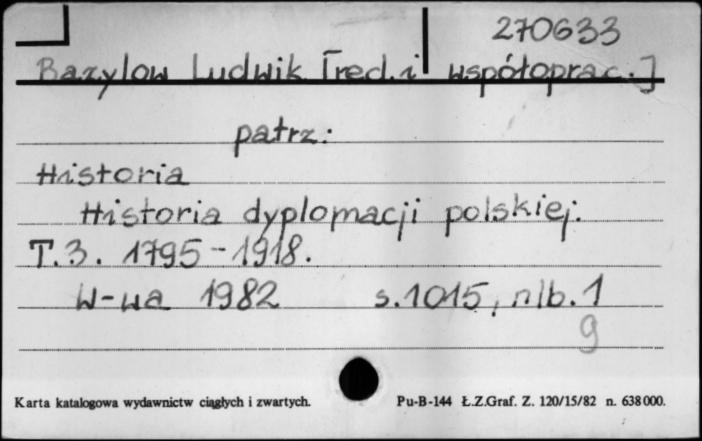 270633
Bazylow Ludwik [red. i współoprac.]
patrz:
Historia
Historia dyplomacji polskiej.
T.3. 1795-1918.
W-wa 1982 s.1015, nlb.1
9
Karta katalogowa wydawnictw ciągłych i zwartych. Pu-B-144 Ł.Z.Graf. Z. 120/15/82 n. 638000.